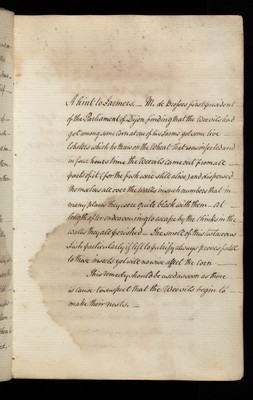 A hint to Farmers. — M. de Brosses first president
of the Parliament of Dijon finding that the Weevils had
got among some Corn at one of his farms got some live
Lobsters which he threw on the Wheat that was infested and
in four hours time the Weevils came out from all
parts of it (for the fish were still alive) and dispersed
themselves all over the walls in such numbers that in
many places they were quite black with them — at
length after endeavouring to escape by the Chinks in the
walls they all perished — The smell of this testaceous
fish particularly if left to putrify always proves fatal
to these insects yet will no wise affect the Corn
This remedy should be used as soon as there
is cause to suspect that the Weevils begin to
make their nests. —